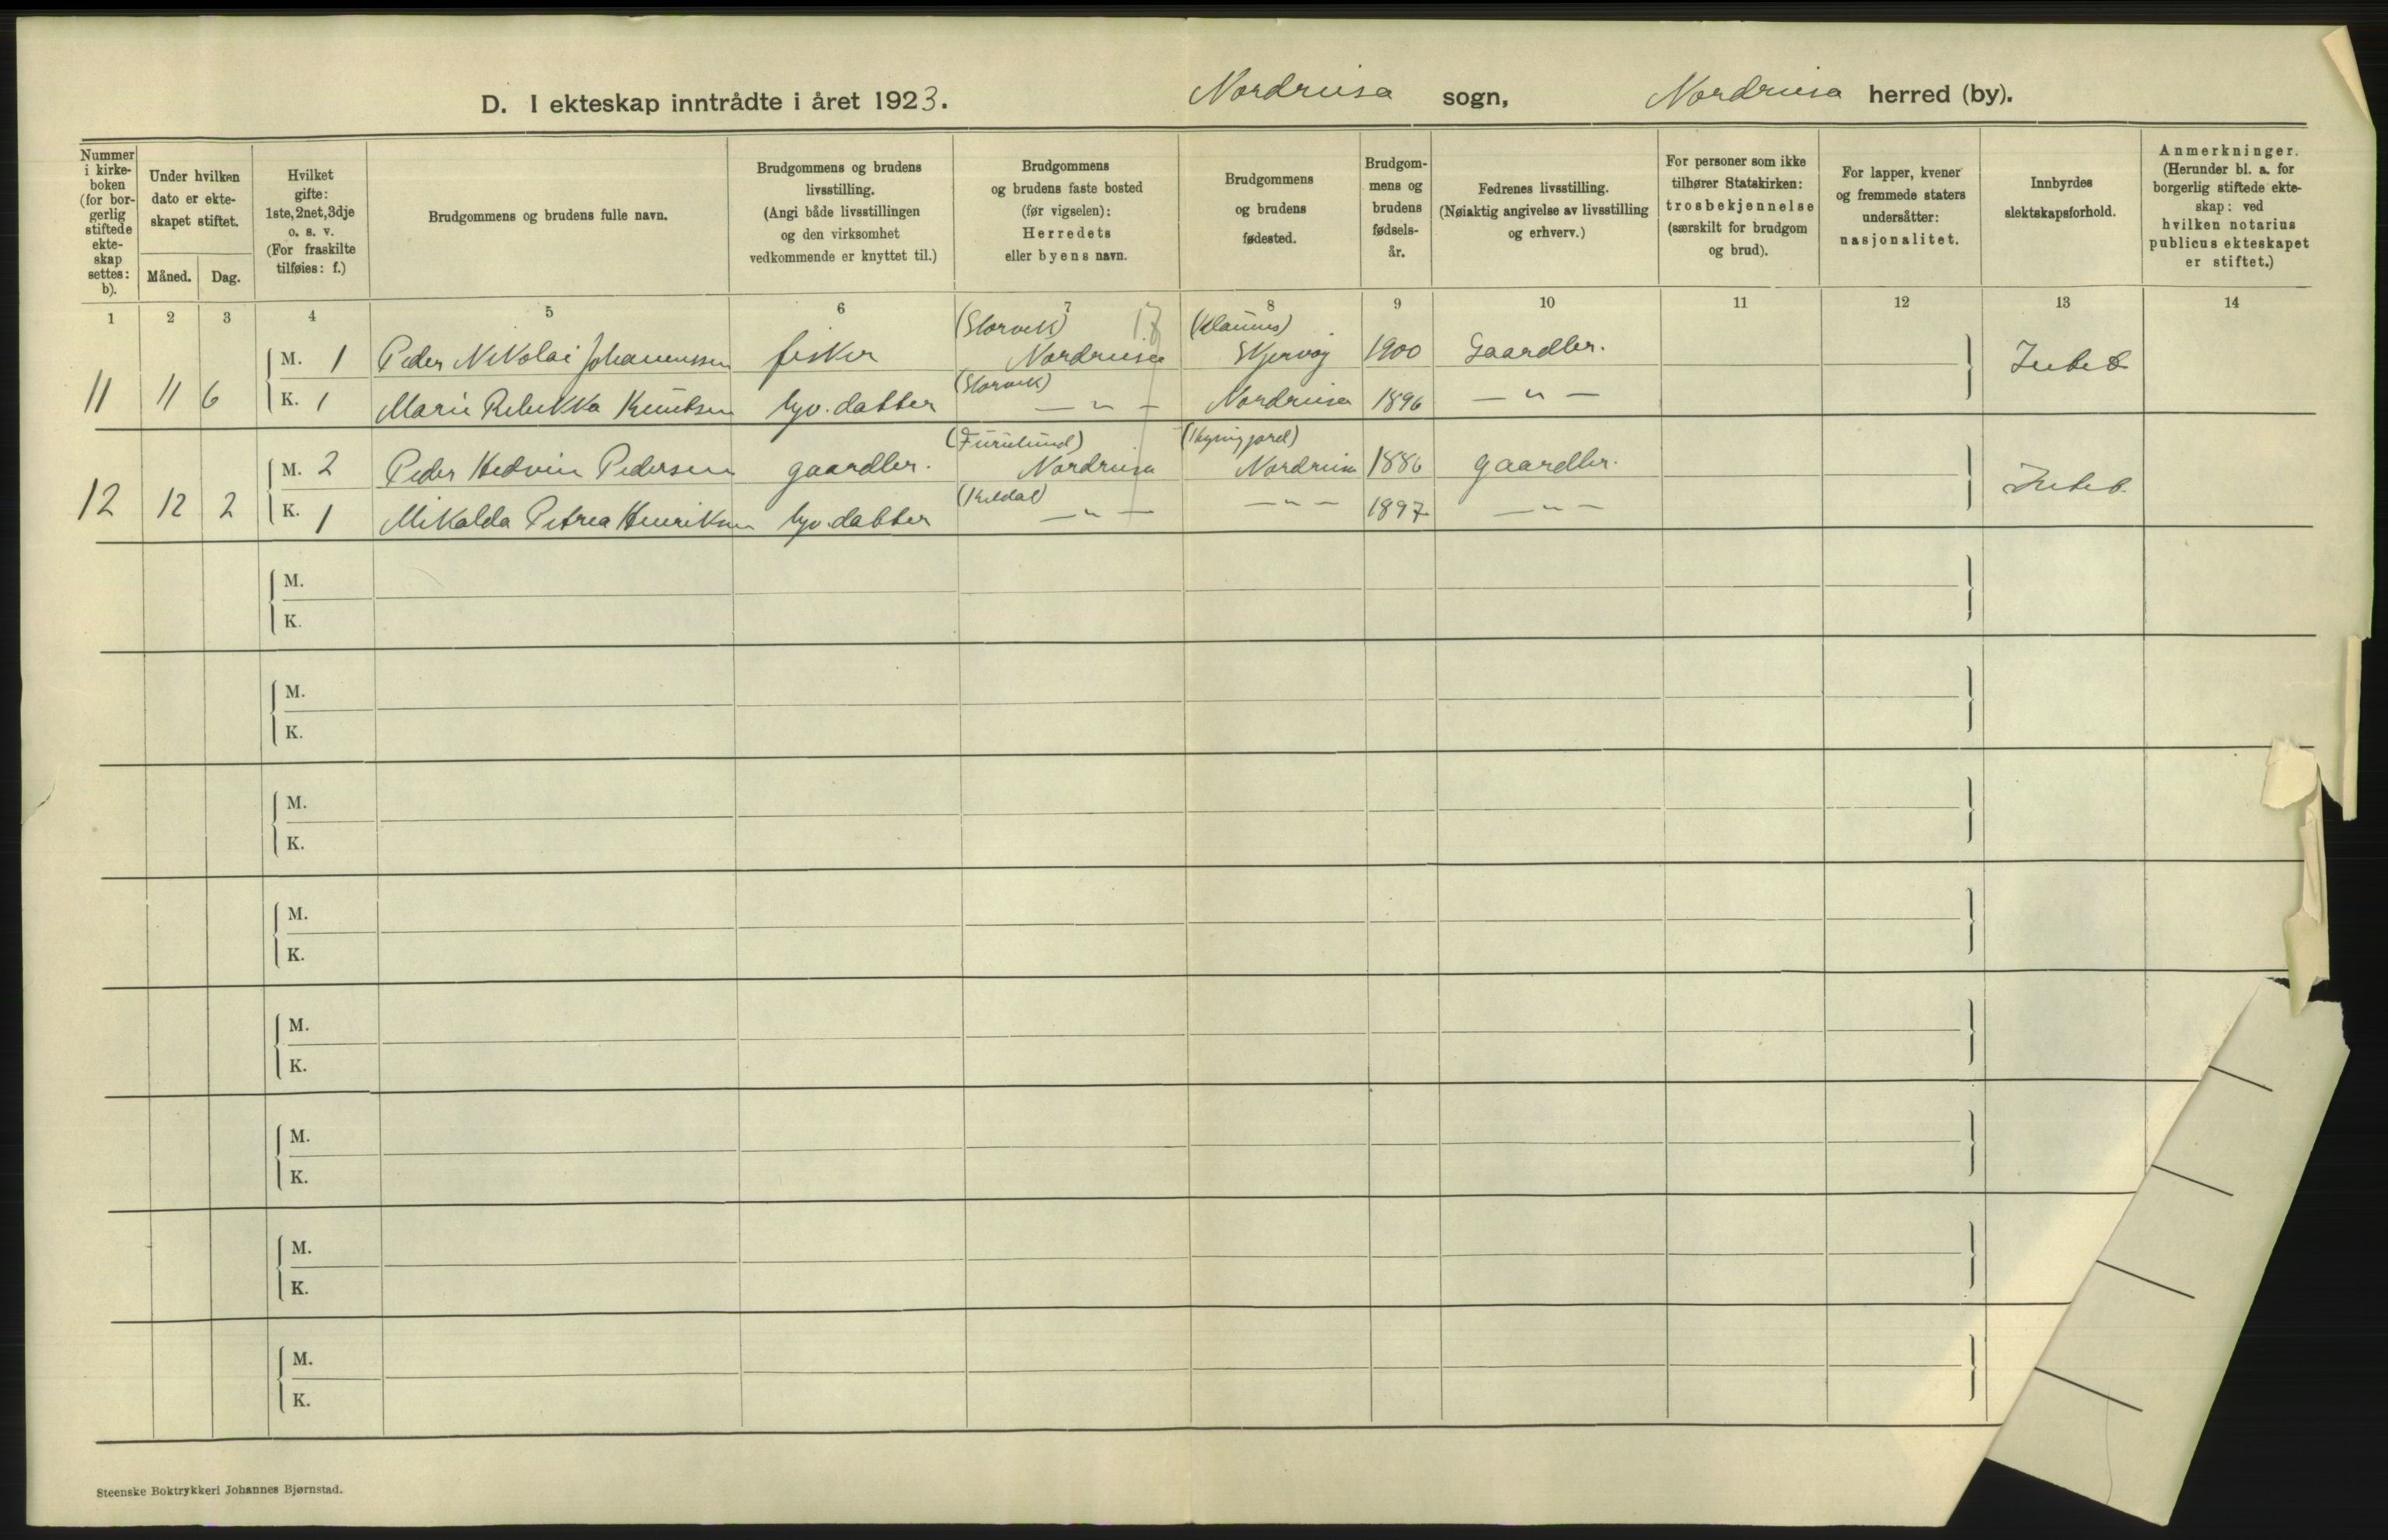 D. I ekteskap inntrådte i året 1923. Nordreisa sogn, Nordreisa herred (by).
Nummer i kirkeboken (for borgerlig stiftede ekteskap settes: b).
Under hvilken dato er ekteskapet stiftet.
Måned. Dag.
Hvilket gifte: 1ste, 2net, 3dje o. s. v. (For fraskilte tilføies: f.)
Brudgommens og brudens fulle navn.
Brudgommens og brudens livsstilling. (Angi både livsstillingen og den virksomhet vedkommende er knyttet til.)
Brudgommens og brudens faste bosted (før vigselen): Herredets eller byens navn.
Brudgommens og brudens fødested.
Brudgommens og brudens fødselsår.
Fedrenes livsstilling. (Nøiaktig angivelse av livsstilling og erhverv.)
For personer som ikke tilhører Statskirken: trosbekjennelse (særskilt for brudgom og brud).
For lapper, kvener og fremmede staters undersåtter: nasjonalitet.
Innbyrdes slektskapsforhold.
Anmerkninger. (Herunder bl. a. for borgerlig stiftede ekteskap: ved hvilken notarius publicus ekteskapet er stiftet.)
1 2 3 4 5 6 7 8 9 10 11 12 13 14
(Storvik)
M. 1 Peder Nikolai Johannessen fisker Nordreisa Skjervøy 1900 Gaardbr.
11 11 6 Intet
(Storvik)
K. 1 Marie Rebekka Knutsen hjv. datter — " — Nordreisa 1896 — " —
(Furulund)
M. 2 Peder Hedvin Pedersen gaardbr. Nordreisa Nordreisa 1886 gaardbr.
12 12 2 Intet.
(Kildal)
K. 1 Mikalda Petrea Henriksen hjv. datter — " — — " — 1897 — " —
M.
K.
M.
K.
M.
K.
M.
K.
M.
K.
M.
K.
M.
K.
M.
K.
Steenske Boktrykkeri Johannes Bjørnstad.